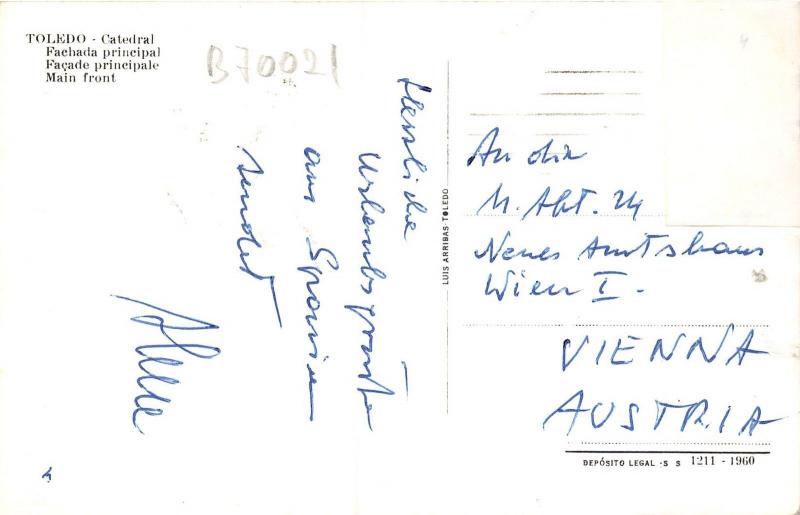 TOLEDO - Catedral
Fachada principal
Façade principale
Main front
B70021
Herzliche
Urlaubsgrüße
aus Spanien
sendet
LUIS ARRIBAS-TOLEDO
An die
M. Abt. 24
Neues Amtshaus
Wien I.
VIENNA
AUSTRIA
DEPÓSITO LEGAL - S S 1211 - 1960